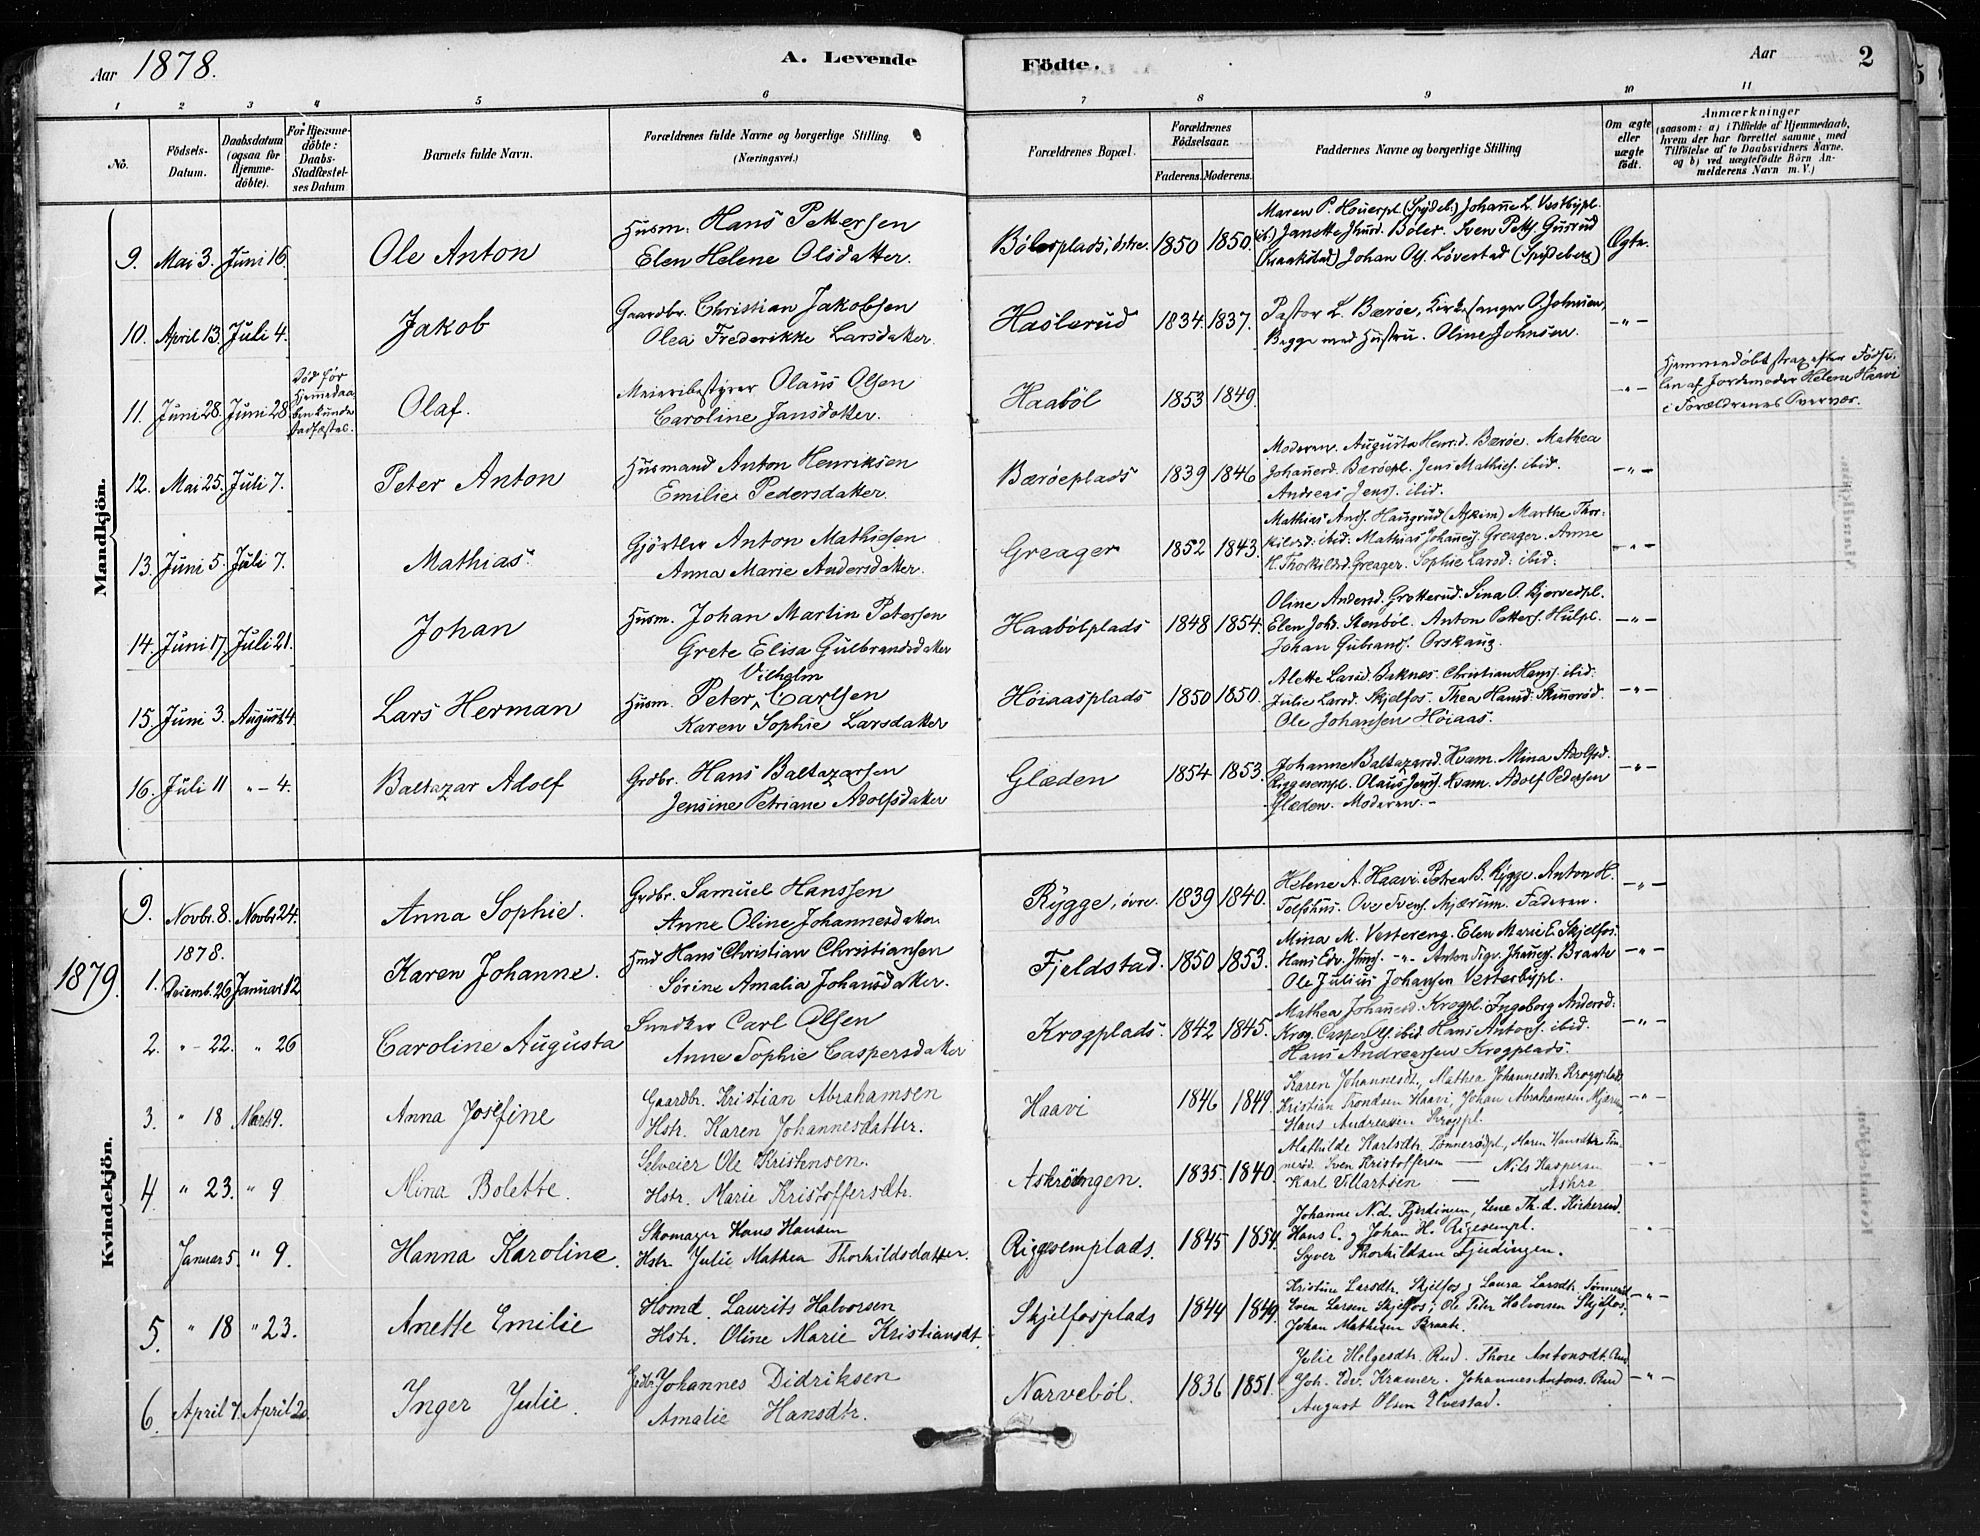 Aar 1878. A. Levende Födte. Aar 2
1 2 3 4 5 6 7 8 9 10 11
No. Födsels-Datum. Daabsdatum (ogsaa for Hjemmedöbte). For Hjemmedöbte: Daabs-Stadfæstelses Datum Barnets fulde Navn. Forældrenes fulde Navne og borgerlige Stilling. (Næringsvei.) Forældrenes Bopæl. Forældrenes Födselsaar. Faderens. Moderens. Faddernes Navne og borgerlige Stilling Om ægte eller uægte födt. Anmærkninger (saasom: a) i Tilfælde af Hjemmedaab, hvem der har forrettet samme, med Tilföielse af to Daabsvidners Navne. og b) ved uægtefödte Börn Anmelderens Navn m. V.)
Mandkjön.
9. Mai 3. Juni 16. Ole Anton Husm. Hans Pettersen
Elen Helene Olsdatter. Bölerplads, östre. 1850 1850. Maren P. Houerpl. (Spydeb.) Johane L. Vestbypl.
(ib.) Janette Jhnsd. Böler. Sven Petts. Gusrud
(Kraakstad) Johan Ols. Lövestad (Spydeberg) Ægte.
10. April 13. Juli 4. Jakob Gaardbr. Christian Jakobsen
Olea Frederikke Larsdatter. Haslerud 1834. 1837. Pastor L. Bærøe, Kirkesanger O. Johnsen,
Begge med Hustru. Oline Johnsen. – " –
11. Juni 28. Juni 28 Död før Hjemmedaaben kunde stadfæstes. Olaf. Meieribestyrer Olaus Olsen
Caroline Jansdatter. Haaböl 1853 1849. – " – Hjemmedöbt strax efter Födse-
len af Jordemoder Helene Haavi
i Forældrenes Overvær.
12. Mai 25. Juli 7. Peter Anton Husmand Anton Henriksen
Emilie Pedersdatter. Bærøeplads 1839 1846 Moderen. Augusta Henrd. Bærøe. Mathea
Johanesd. Bærøepl. Jens Mathis. ibid.
Andreas Jens. ibid. – " –
13. Juni 5. Juli 7. Mathias. Gjörtler Anton Mathisen
Anna Marie Andersdatter. Greager 1852 1843. Mathias Ands. Haugrud (Askim) Marthe Thor-
kilds. ibid. Mathias Johanes. Greager. Anne
K. Thorkildsd. Greager. Sophie Larsd. ibid. – " –
14. Juni 17. Juli 21. Johan Husm. Johan Martin Petersen
Grete Elisa Gulbrandsdatter Haabölplads 1848 1854. Oline Andersd. Grotterud. Sina O. Bjorvedpl.
Elen Johs. Stenböl. Anton Petters. Hulpl.
Johan Gubrans. Orskaug. – " –
15. Juni 3. August 4. Lars Herman Husm. Peter Vilhelm Carlsen
Karen Sophie Larsdatter Höiaasplads 1850 1850. Alette Larsd. Birknes. Christian Hans. ibid.
Julie Larsd. Skjelfos. Thea Hansd.
Ole Johansen Höiaas. – " –
16. Juli 11 " – 4. Baltazar Adolf Grdbr. Hans Baltazarsen
Jensine Petriane Adolfsdatter Glæden 1854 1853. Johanne Baltazarsd. Kvam. Mina Adolfsd.
Riggesempl. Olaus Jens. Kvam. Adolf Pedersen
Glæden. Moderen. – – " –
Kvindekjön.
9. Novbr. 8. Novbr. 24. Anna Sophie. Grdbr. Samuel Hanssen
Anne Oline Johannesdatter Rygge, övre. 1839 1840. Helene A. Haavi. Petrea B. Rygge. Anton H.
Tofshus. Ove Svens. Mjærum. Faderen. – " –
1879
1878.
1. Decemb. 26 Januar 12 Karen Johanne. Hmd Hans Christian Christiansen
Sörine Amalia Johansdatter. Fjeldstad. 1850 1853. Mina M. Vestereng. Elen Marie E. Skjelfos.
Hans Edv. – " – Anton Braate
Ole Julius Johansen Vesterbypl. – " –
2. " – 22. " 26 Caroline Augusta Smedker Carl Olsen
Anne Sophie Caspersdatter Krogplads 1842 1845. Mathea Johanesd. Krogpl. Ingeborg Andersd.
Krog. Casper Ols. ibid Hans Antons. ibid.
Hans Andreassen Krogplads. – " –
3. " 18 Marts 9. Anna Josefine Gaardbr. Kristian Abrahamsen
Hstr. Karen Johannesdatter. Haavi 1846 1849. Karen Johannesdtr, Mathea Johannesdtr. Krogsplad.
Kristian Trondsen Haavi, Johan Abrahamsen Mjærum
Hans Andreassen Krogpl. – " –
4 " 23. " 9 Mina Bolette. Selveier Ole Kristensen.
Hstr. Marie Kristoffersdtr. Askröingen. 1835. 1840. Mathilde Karlsdtr. Tönnerödpl, Maren Hansdtr Tön-
neröd. Sven Kristoffersen — Nils Kaspersen
Karl Villartsen — Askrø – " –
Januar 5. " 9. Hanna Karoline. Skomager Hans Hansen
Hstr. Julie Mathea Thorkildsdatter. Riggesemplads. 1845 1854. Johanne N.d. Fjerdingen, Lene Th.d. Kirkerud.
Hans C. og Johan H. Rigesempl.
Syver Thorkildsen Fjerdingen. – " –
5. " 18 " 23. Anette Emilie Homd. Laurits Halvorsen
Hstr. Oline Marie Kristiansdt. Skjelfosplads 1844 1849. Kristine Larsdtr. Skjelfos, Laura Larsdtr. Tönneröd
Sven Larsen Skjelfos; Ole Peter Halvorsen Skjelfos.
Johan Mathisen Braate. – " –
6. April 7. April 20. Inger Julie. Grdbr. Johannes Didriksen
Amalie Hansdtr. Narveböl. 1836 1851. Julie Helgesdtr. Rud. Thore Antonsdt. Rud
Joh. Edv. Kramer. Johannes Antons. Rud
August Olsen Elvestad. – " –